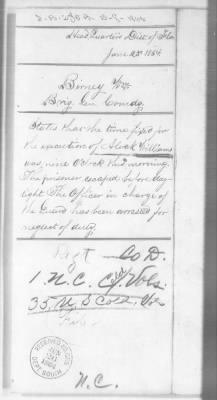 Head Quarters Dist of Fla
June 1864
Birney
Brig Gen Comdg
States that the time fixed for
the execution of Williams
was nine O'clock this morning.
The prisoner escaped before day-
light. The Officer in charge of
the Guard has been arrested for
neglect of duty.
Co D.
1 N.C. Vols.
35 U.S. Cold.
RECEIVED
1864
DEPT SOUTH
N.C.